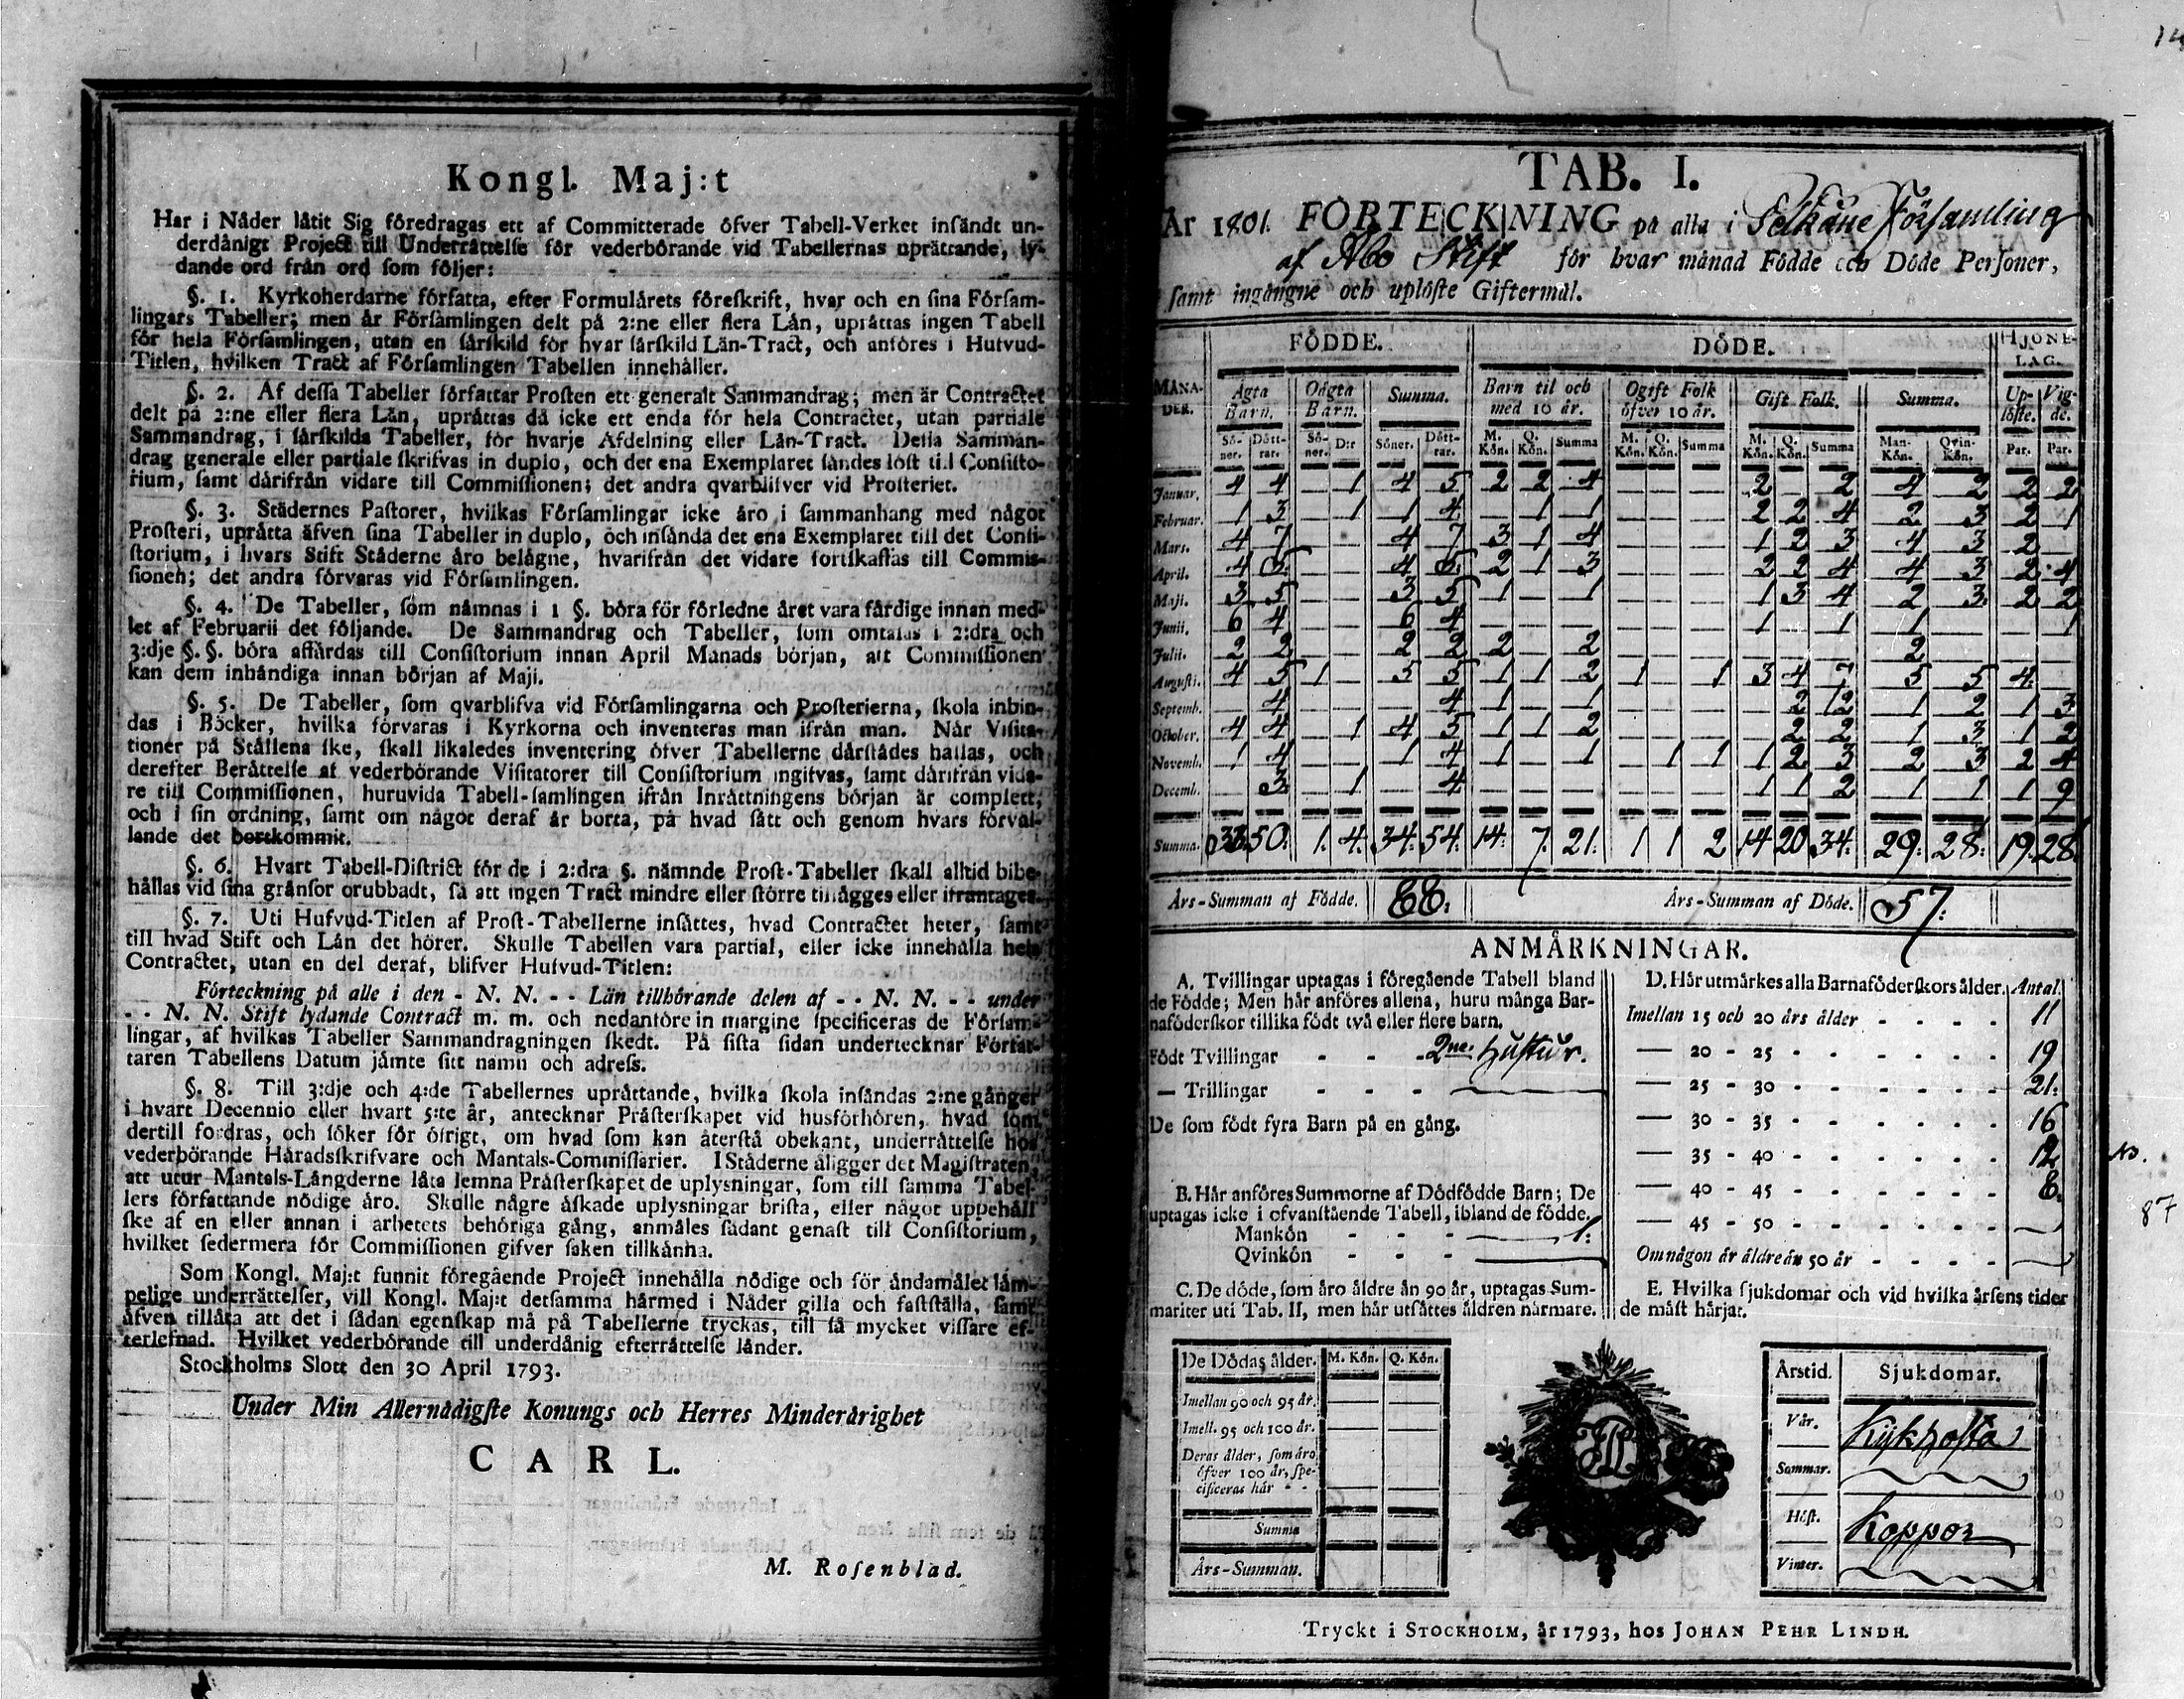 Kongl. Maj:t
Har i Nåder låtit Sig föredragas ett af Committerade öfver Tabell-Verket insändt un-
derdånigt Project till Underrättelse för vederbörande vid Tabellernas uprättande, ly-
dande ord från ord som följer:
§. 1. Kyrkoherdarne författa, efter Formulårets föreskrift, hvar och en sina Försam-
lingars Tabeller; men är Församlingen delt på 2:ne eller flera Län, uprättas ingen Tabell
för hela Församlingen, utan en särskild för hvar särskild Län-Tract, och anföres i Hufvud-
Titlen, hvilken Tract af Församlingen Tabellen innehåller.
§. 2. Af dessa Tabeller författar Prosten ett generalt Sammandrag; men är Contractet
delt på 2:ne eller flera Län, uprättas då icke ett enda för hela Contractet, utan partiale
Sammandrag, i särskilda Tabeller, för hvarje Afdelning eller Län-Tract. Dessa Samman-
drag generale eller partiale skrifvas in duplo, och det ena Exemplaret sändes löst till Consisto-
rium, samt därifrån vidare till Commissionen; det andra qvarblifver vid Prosteriet.
§. 3. Städernes Pastorer, hvilkas Församlingar icke äro i sammanhang med något
Prosteri, uprätta äfven sina Tabeller in duplo, och insända det ena Exemplaret till det Consi-
storium, i hvars Stift Städerne äro belägne, hvarifrån det vidare fortskaffas till Commis-
sionen; det andra förvaras vid Församlingen.
§. 4. De Tabeller, som nämnas i 1 §. böra för förledne året vara färdige innan med-
let af Februarii det följande. De Sammandrag och Tabeller, som omtalas i 2:dra och
3:dje §. §. böra affärdas till Consistorium innan April Månads början, att Commissionen
kan dem inhändiga innan början af Maji.
§. 5. De Tabeller, som qvarblifva vid Församlingarna och Prosterierna, skola inbin-
das i Böcker, hvilka förvaras i Kyrkorna och inventeras man ifrån man. När Visita-
tioner på Ställena ske, skall likaledes inventering öfver Tabellerne därstädes hållas, och
derefter Berättelse af vederbörande Visitatorer till Consistorium ingifvas, samt därifrån vida-
re till Commissionen, huruvida Tabell-samlingen ifrån Inrättningens början är complett,
och i sin ordning, samt om något deraf är borta, på hvad sätt och genom hvars förvål-
lande det bortkommit.
§. 6. Hvart Tabell-District för de i 2:dra §. nämnde Prost-Tabeller skall alltid bibe-
hållas vid sina gränsor orubbadt, så att ingen Tract mindre eller större tillägges eller ifråntages.
§. 7. Uti Hufvud-Titlen af Prost-Tabellerne insättes, hvad Contractet heter, samt
till hvad Stift och Län det hörer. Skulle Tabellen vara partial, eller icke innehålla hela
Contractet, utan en del deraf, blifver Hufvud-Titlen:
Förteckning på alle i den - N. N. - - Län tillhörande delen af - - N. N. - - under
- - N. N. Stift lydande Contract m. m. och nedanföre in margine specificeras de Försam-
lingar, af hvilkas Tabeller Sammandragningen skedt. På sista sidan undertecknar Förfat-
taren Tabellens Datum jämte sitt namn och adress.
§. 8. Till 3:dje och 4:de Tabellernes uprättande, hvilka skola insändas 2:ne gånger
i hvart Decennio eller hvart 5:te år, antecknar Prästerskapet vid husförhören, hvad som
dertill fordras, och söker för öfrigt, om hvad som kan återstå obekant, underrättelse hos
vederbörande Häradsskrifvare och Mantals-Commissarier. I Städerne åligger det Magistraten,
att utur Mantals-Längderne låta lemna Prästerskapet de uplysningar, som till samma Tabel-
lers författande nödige äro. Skulle någre äskade uplysningar brista, eller något uppehåll
ske af en eller annan i arbetets behöriga gång, anmäles sådant genast till Consistorium,
hvilket sedermera för Commissionen gifver saken tillkänna.
Som Kongl. Maj:t funnit föregående Project innehålla nödige och för ändamålet läm-
pelige underrättelser, vill Kongl. Maj:t detsamma härmed i Nåder gilla och fastställa, samt
äfven tillåta att det i sådan egenskap må på Tabellerne tryckas, till så mycket vissare ef-
terlefnad. Hvilket vederbörande till underdånig efterrättelse länder.
Stockholms Slott den 30 April 1793.
Under Min Allernådigste Konungs och Herres Minderårighet
CARL.
M. Rosenblad.
TAB. I.
År 1801. FÖRTECKNING på alla i Pelkäne Församling
af Åbo Stift för hvar månad Födde och Döde Personer,
samt ingångne och uplöste Giftermål.
FÖDDE. DÖDE. HJONE-LAG.
MÅNADER. Ägta Barn. Oägta Barn. Summa. Barn til och med 10 år. Ogift Folk öfver 10 år. Gift Folk. Summa. Uplöste. Vigde.
Söner. Döttrar. Söner. D:r Söner. Döttrar. M. Kön. Q. Kön. Summa M. Kön. Q. Kön. Summa M. Kön. Q. Kön. Summa Mankön. Qvinkön. Par. Par.
Januar. 4 4 — 1 4 5 2 2 4 — — — 2 — 2 4 2 2 2
Februar. 1 3 — 1 1 4 — 1 1 — — — 2 2 4 2 3 2 1
Mars. 4 7 — — 4 7 3 1 4 — — — 1 2 3 4 3 2 —
April. 4 5 — — 4 5 2 1 3 — — — 2 2 4 4 3 2 4
Maji. 3 5 — — 3 5 1 — 1 — — — 1 3 4 2 3 2 2
Junii. 6 4 — — 6 4 — — — — — — 1 — 1 1 — — 1
Julii. 2 2 — — 2 2 2 — 2 — — — — — — 2 — — —
Augusti. 4 5 1 — 5 5 1 1 2 1 — 1 3 4 7 5 5 4 —
Septemb. — 4 — — — 4 1 — 1 — — — — 2 2 1 2 1 3
October. 4 4 — 1 4 5 1 1 2 — — — — 2 2 1 3 1 2
Novemb. 1 4 — — 1 4 1 — 1 — 1 1 1 2 3 2 3 2 4
Decemb. — 3 — 1 — 4 — — — — — — 1 1 2 1 1 1 9
Summa. 33. 50. 1. 4. 34. 54. 14. 7. 21. 1 1 2 14 20 34. 29. 28. 19. 28.
Års-Summan af Födde. 88. Års-Summan af Döde. 57.
ANMÄRKNINGAR.
A. Tvillingar uptagas i föregående Tabell bland
de Födde; Men här anföres allena, huru många Bar-
naföderskor tillika födt två eller flere barn.
Födt Tvillingar - - - 2ne. Hustur.
— Trillingar - - -
De som födt fyra Barn på en gång.
B. Här anföres Summorne af Dödfödde Barn; De
uptagas icke i ofvanstående Tabell, ibland de födde.
Mankön - - - 1.
Qvinkön - - -
C. De döde, som äro äldre än 90 år, uptagas Sum-
mariter uti Tab. II, men här utsättes åldren närmare.
D. Här utmärkes alla Barnaföderskors ålder. Antal.
Imellan 15 och 20 års ålder - - - - 11
— 20 - 25 - - - - - - 19
— 25 - 30 - - - - - - 21.
— 30 - 35 - - - - - - 16
— 35 - 40 - - - - - - 12
— 40 - 45 - - - - - - 8.
— 45 - 50 - - - - - - —
Om någon är äldre än 50 år - - - - —
87
E. Hvilka sjukdomar och vid hvilka årsens tider
de mäst härjat.
De Dödas ålder. M. Kön. Q. Kön.
Imellan 90 och 95 år.
Imell. 95 och 100 år.
Deras ålder, som äro
öfver 100 år, spe-
cificeras här - -
Summa
Års-Summan.
Årstid. Sjukdomar.
Vår. Kikhosta
Sommar.
Höst. Koppor
Vinter.
Tryckt i STOCKHOLM, år 1793, hos JOHAN PEHR LINDH.